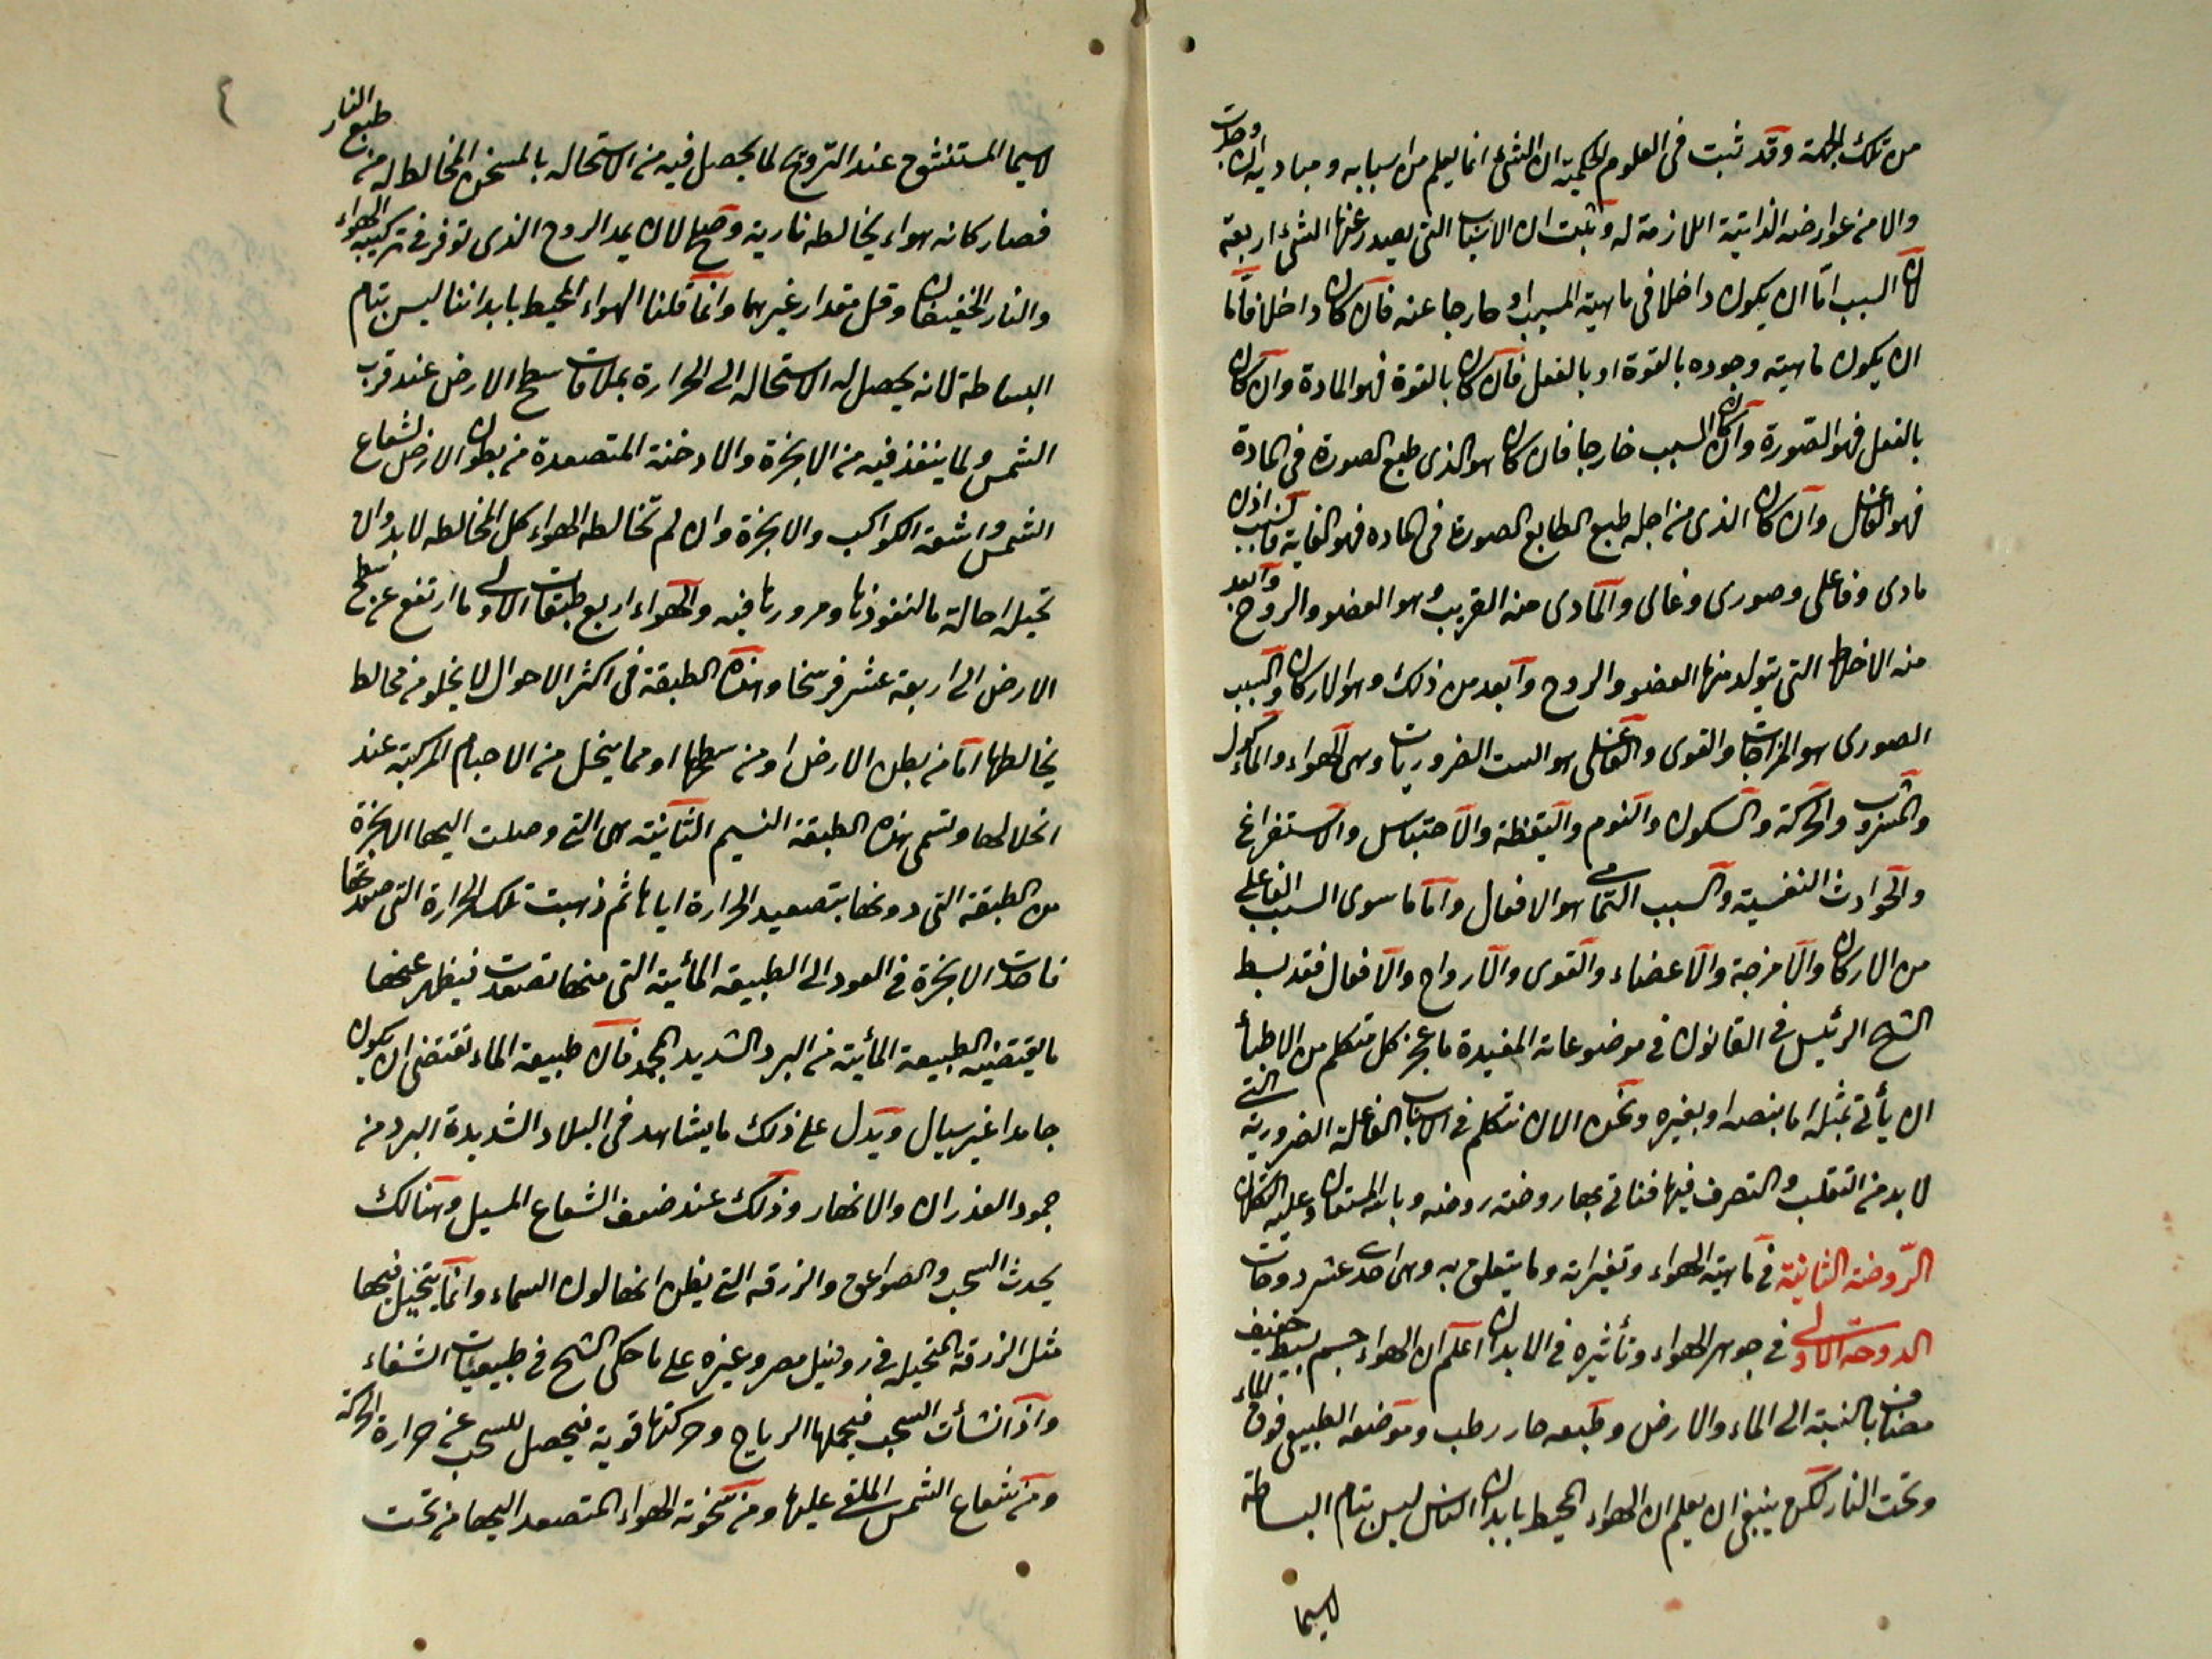 من تلك الجهة وقد ثبت فى العلوم الحكمية ان الشئ انما يعلم من اسبابه ومباديه ان وجدت
والا من عوارضه الذاتية اللازمة له وثبت ان الاسباب التى يصدر عنها الشئ اربعة
لان السبب اما ان يكون داخلا فى ماهية المسبب او خارجا عنه فان كان داخلا فاما
ان يكون ماهيته وجوده بالقوة او بالفعل فان كان بالقوة فهو المادة وان كان
بالفعل فهو الصورة وان كان السبب خارجا فان كان هو الذى طبع الصورة فى المادة
فهو الفاعل وان كان الذى من اجله طبع الطابع الصورة فى الماده فهو الغاية فاسبب اذن
مادى وفاعلى وصورى وغائى والمادى منه القريب وهو العضو والروح وابعد
منه الاخلاط التى يتولد منها العضو والروح وابعد من ذلك وهو الاركان والسبب
الصورى هو المزاجات والقوى والفاعلى هو الست الضروريات وهى الهواء والماكول
والمشروب والحركة والسكون والنوم واليقظة والاحتباس والاستفراغ
والحوادث النفسية والسبب التمامى هو الافعال واما ما سوى السبب الفاعلى
من الاركان والامزجة والاعضاء والقوى والارواح والافعال فقد بسط
الشيخ الرئيس فى القانون فى موضوعاته المفيدة ما عجز كل متكلم من الاطبأ
ان يأتى بمثله اما بنصه او بغيره ونحن الان نتكلم فى الاسباب الفاعلة الضرورية التى
لا بد من التقلب والتصرف فيها فنأتى بها روضة روضة وبالله المستعان وعليه التكلان
الروضة الثانية فى ماهية الهواء وتغيراته وما يتعلق به وهى احدى عشر دوحات
الدوحة الاولى فى جوهر الهواء وتأثيره فى الابدان اعلم ان الهواء جسم بسيط خفيف
مضاف بالنسبة الى الماء والارض وطبعه حار رطب وموضعه الطبيعى فوق الماء
وتحت النار لكن ينبغى ان يعلم ان الهواء المحيط بابدان الناس ليس بتام البساطة
لاسيما
٤
لاسيما المستنشق عند التروح لما يحصل فيه من الاستحاله بالمسخن المخالط له من طبع النار
فصار كانه هواء يخالطه نارية وصح لان يمد الروح الذى توفر فى تركيبه الهواء
والنار الخفيفان وقل مقدار غيرهما وانما قلنا الهواء المحيط بابداننا ليس بتام
البساطة لانه يحصل له الاستحاله الى الحرارة بملاقات سطح الارض عند قرب
الشمس ولما ينفذ فيه من الابخرة والادخنة المتصعدة من بطون الارض لشعاع
الشمس واشعة الكواكب والابخرة وان لم تخالطه الهواء كل المخالطه لا بد وان
تحيله احالة ما لنفوذها ومرورها فيه والهواء اربع طبقات الاولى ما ارتفع عن سطح
الارض الى اربعة عشر فرسخا وهذه الطبقة فى اكثر الاحوال لا يخلو من مخالط
يخالطها اما من بطن الارض او من سطحها او مما ينحل من الاجسام المركبة عند
انحلالها وتسمى هذه الطبقة النسيم الثانية هى التى وصلت اليها الابخرة
من الطبقة التى دونها بتصعيد الحرارة اياها ثم ذهبت تلك الحرارة التى صعدتها
فاخذت الابخرة فى العود الى الطبيعة المائية التى منها تصعدت فيظهر عنها
ما يقتضيه الطبيعة المائية من البرد الشديد المجمد فان طبيعة الماء تقتضى ان يكون
جامدا غير سيال ويدل على ذلك ما يشاهد فى البلاد الشديدة البرد من
جمود الغدران والانهار وذلك عند ضعف الشعاع المسيل وهنالك
يحدث السحب والصواعق والزرقة التى يظن انها لون السماء وانما يتخيل فيها
مثل الزرقة المتخيلة فى رونيل مصر وغيره على ما حكى الشيخ فى طبيعيات الشفاء
واذا انشأت السحب فيحملها الرياح وحركتها قوية فيحصل للسحب من حرارة الحركة
ومن شعاع الشمس الملقى عليها ومن سخونة الهواء المتصعد اليها من تحت